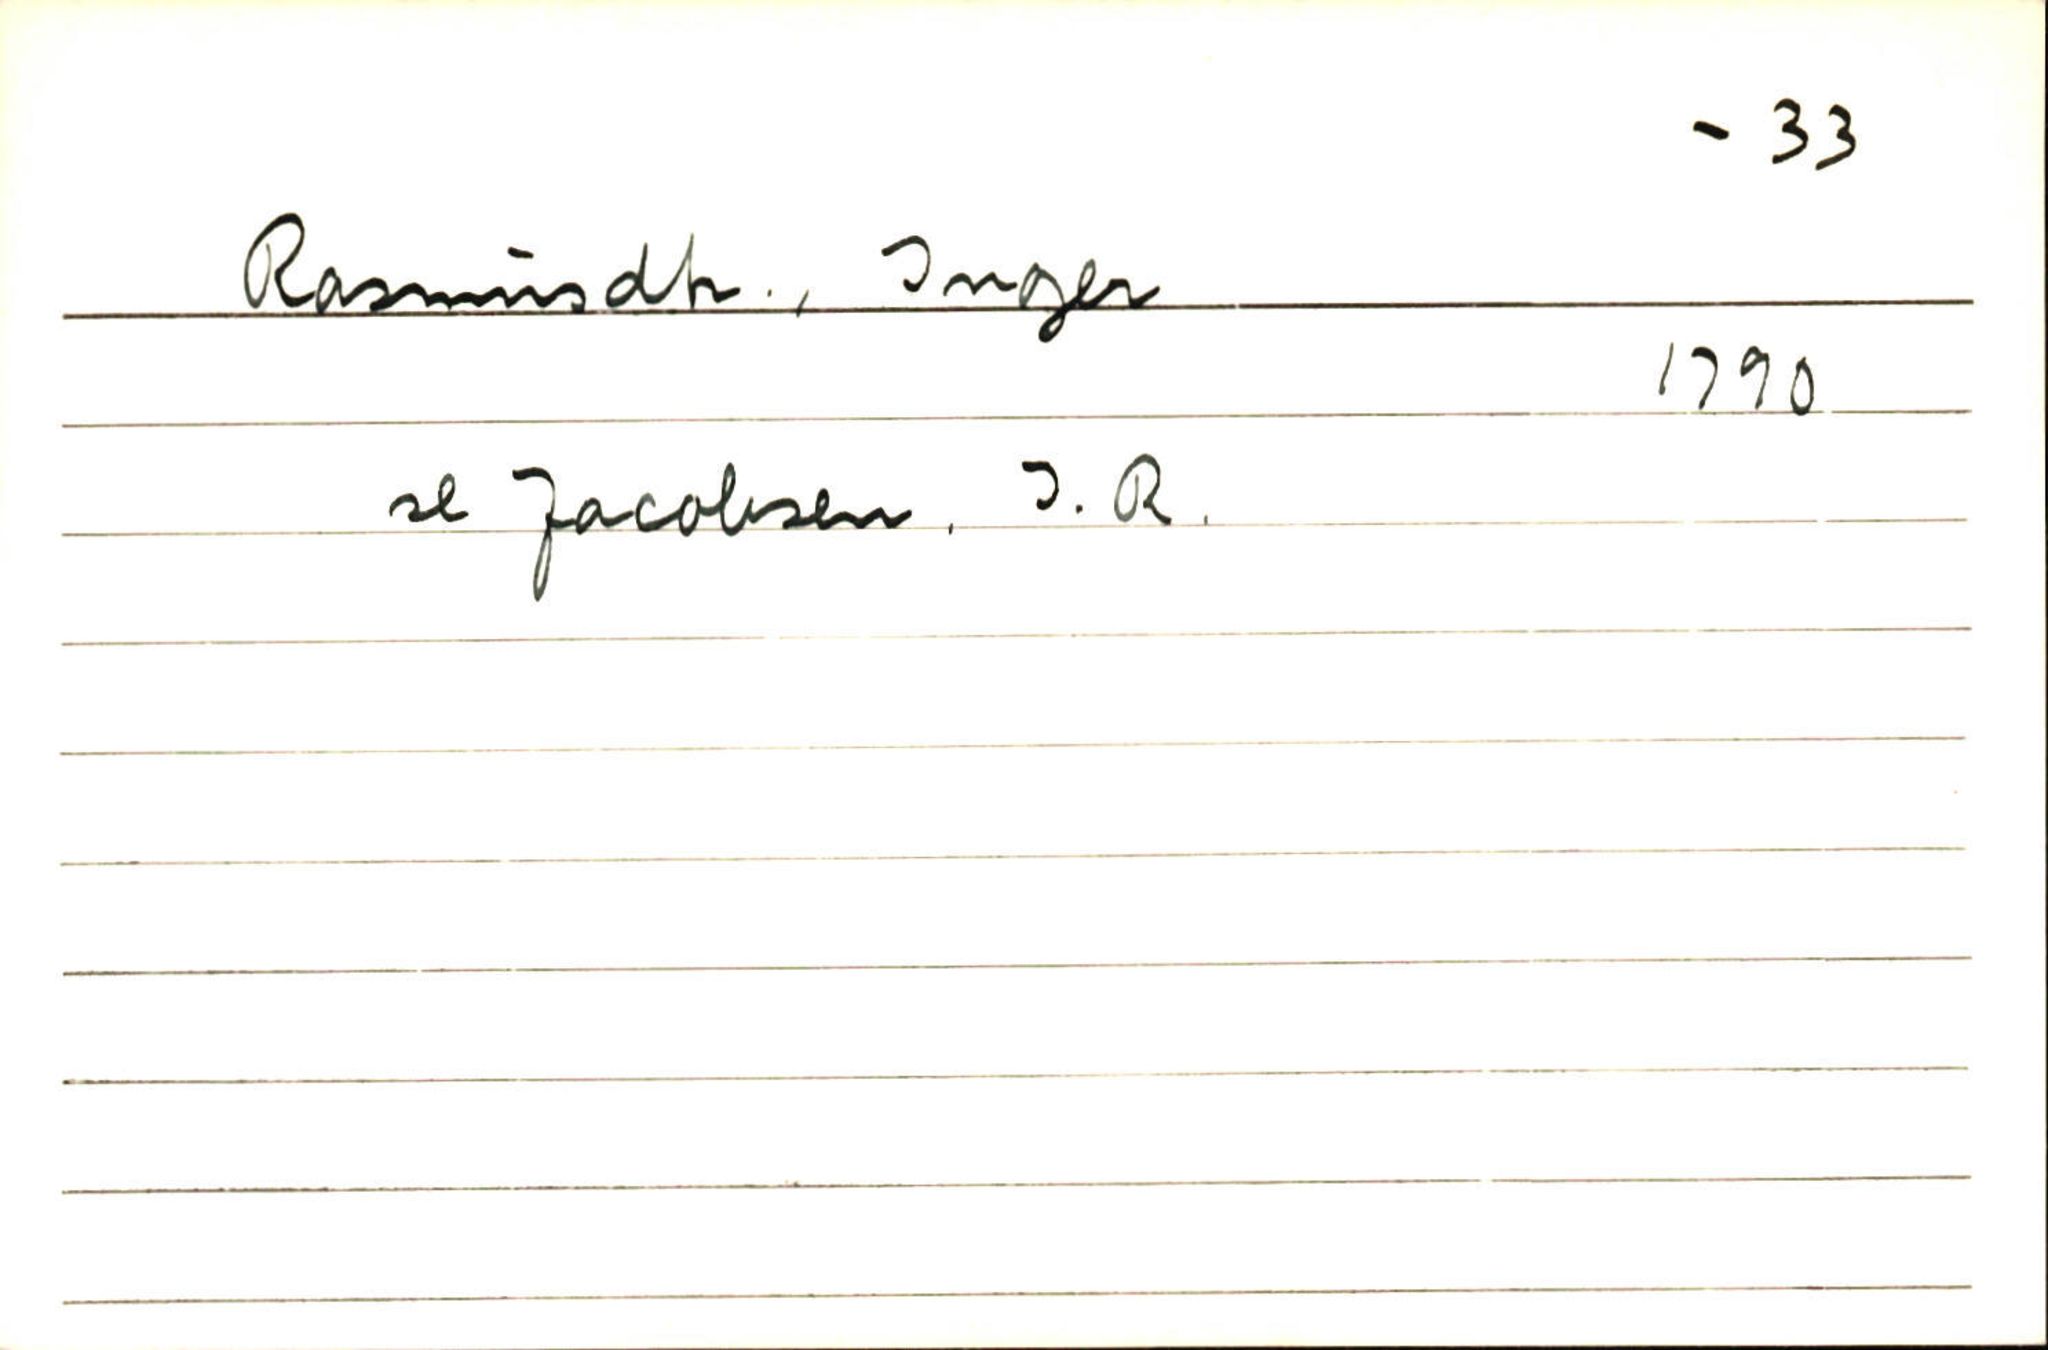 - 33
Rasmusdtr., Inger
1790
se Jacobsen, I. R.